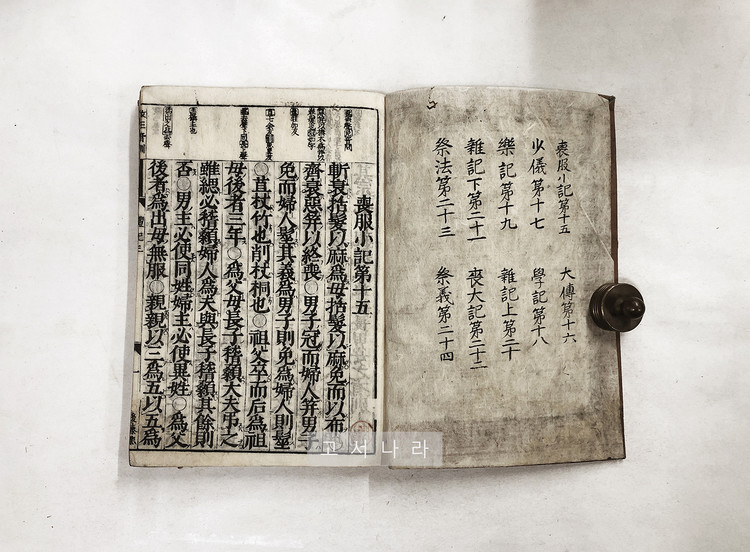 喪服小記第十五　大傳第十六
少儀第十七　學記第十八
樂記第十九　雜記上第二十
雜記下第二十一　喪大記第二十二
祭法第二十三　祭義第二十四
喪服小記第十五
斬衰括髮以麻爲母括髮以麻免而以布
齊衰惡笄以終喪○男子冠而婦人笄男子
免而婦人髽其義爲男子則免爲婦人則髽
○苴杖竹也削杖桐也○祖父卒而后爲祖
母後者三年○爲父母長子稽顙大夫弔之
雖緦必稽顙婦人爲夫與長子稽顙其餘則
否○男主必使同姓婦主必使異姓○爲父
後者爲出母無服○親親以三爲五以五爲
고서나라